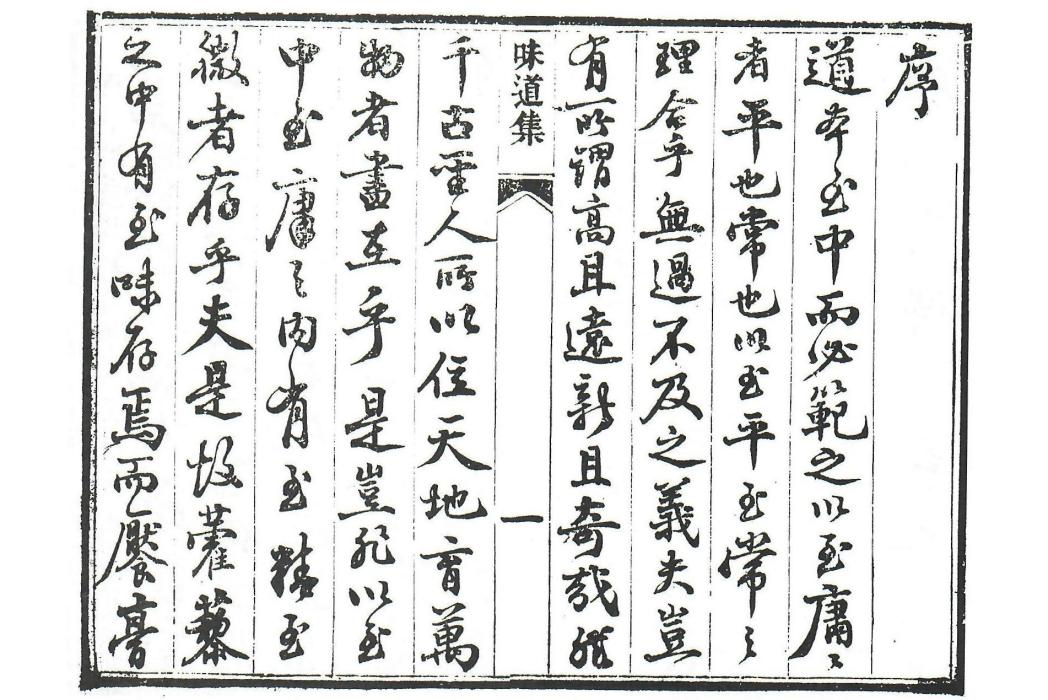 序
道本至中而必範之以至庸庸
者平也常也以至平至常之
理合乎無過不及之義夫豈
有所謂高且遠新且奇哉然
味道集
一
千古聖人所以位天地育萬
物者盡在乎是豈非以至
中至庸之內有至精至
微者存乎夫是故藿藜
之中有至味存焉而饜膏